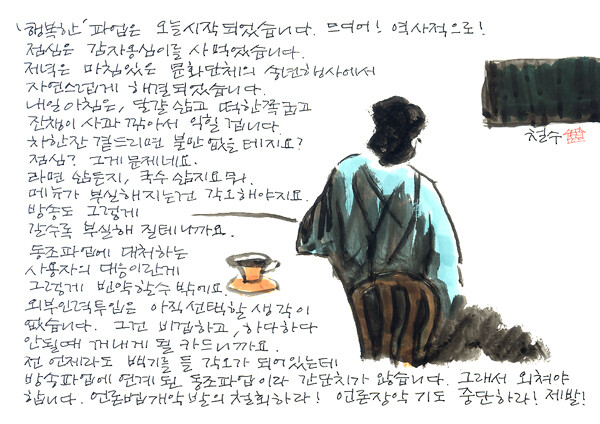 '행복한' 파업은 오늘시작되었습니다. 드디어! 역사적으로!
점심은 감자옹심이를 사먹었습니다.
저녁은 마침있은 문화단체의 송년행사에서
자연스럽게 해결되었습니다.
내일아침은, 달걀 삶고 떡한쪽굽고
잔챙이 사과 깎아서 먹힐 겁니다.
차한잔 곁드리면 불만 없을 테지요?
점심? 그게 문제네요.
라면 삶든지, 국수 삶지요 뭐.
메뉴가 부실해지는건 각오해야지요.
방송도 그렇게
갈수록 부실해 질테니까요.
동조파업에 대처하는
사용자의 대응이란게
그렇게 빈약할수 밖에요.
외부인력투입은 아직선택할 생각이
없습니다. 그건 비겁하고, 하다하다
안될때 꺼내게 될 카드니까요.
전 언제라도 백기를 들 각오가 되어있는데
방송파업에 연계된 동조파업이라 간단치가 않습니다. 그래서 외쳐야
합니다. 언론법개악 발의철회하라! 언론장악 기도 중단하라! 제발!
철수